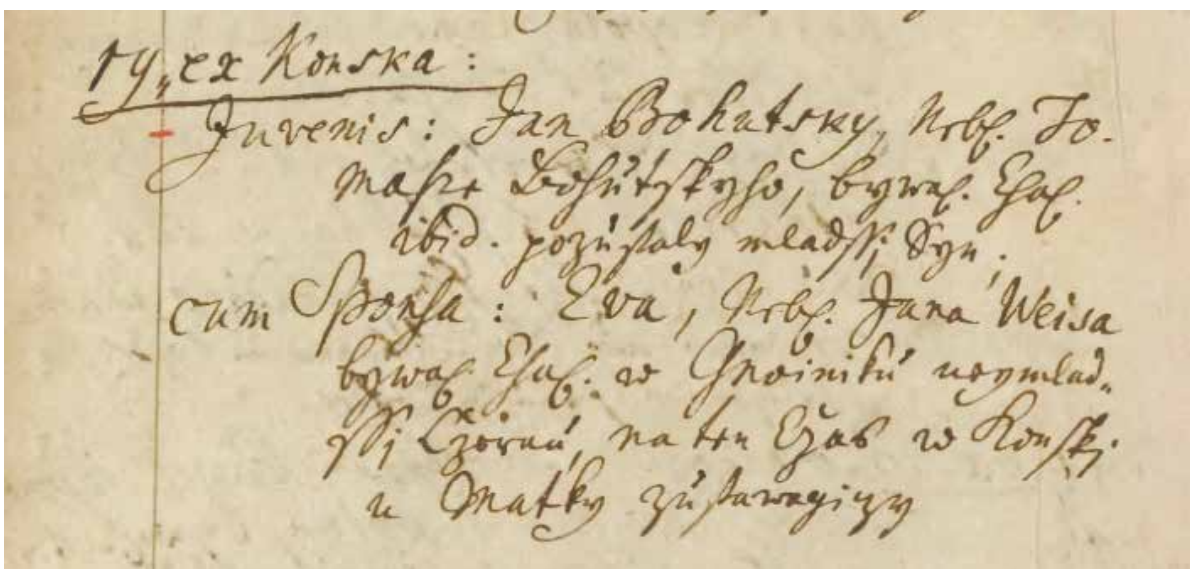 19, ex Konska:
Juvenis: Jan Bohutsky, Nebž. To-
masse Bohutskyho, bywał. Chał.
ibid. pozůstaly mladssj Syn,
cum Sponsa: Eva, Nebž. Jana Weisa
bywał. Chał. w Gnoiniku neymlad-
ssj Czerau, na ten Czas w Konskj
u Matky zůstawagiczy